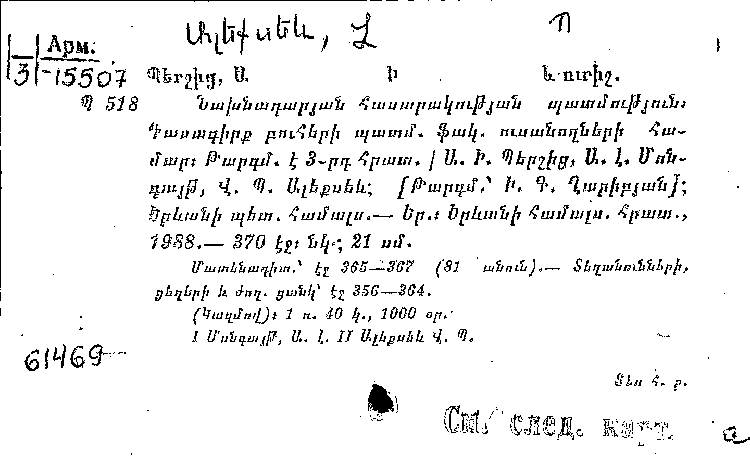 Ալեքսեև, Վ Պ
Арм.
3-15507
Պերշից, Ա. Ի և ուրիշ.
Պ 518 Նախնադարյան հասարակության պատմություն:
Դասագիրք բուհերի պատմ. ֆակ. ուսանողների հա-
մար: Թարգմ. է 3-րդ հրատ. / Ա. Ի. Պերշից, Ա. Լ. Մոն-
գայթ, Վ. Պ. Ալեքսեև; [Թարգմ.՝ Ի. Գ. Ղարիբյան];
Երևանի պետ. համալս.— Եր.: Երևանի համալս. հրատ.,
1988.— 370 էջ: նկ.; 21 սմ.
Մատենագիտ.՝ էջ 365—367 (81 անուն).— Տեղանունների,
ցեղերի և ժող. ցանկ՝ էջ 356—364.
(Կազմով): 1 ռ. 40 կ., 1000 օր.
I Մոնգայթ, Ա. Լ. II Ալեքսեև Վ. Պ.
61469
Տես հ. ք.
См. след. карт.
a